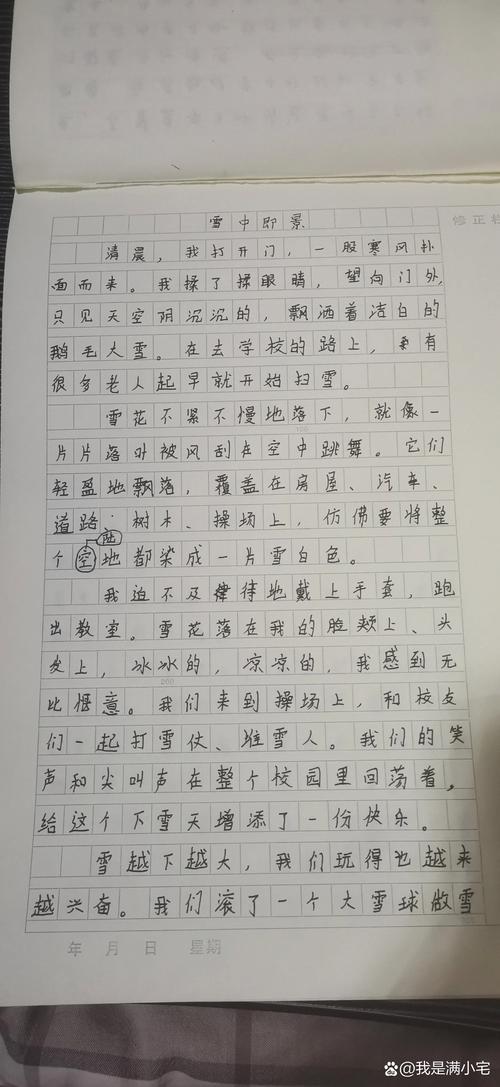 雪中即景
修正栏
清晨，我打开门，一股寒风扑
面而来。我揉了揉眼睛，望向门外，
只见天空阴沉沉的，飘洒着洁白的
鹅毛大雪。在去学校的路上，有
很多老人起早就开始扫雪。
雪花不紧不慢地落下，就像一
片片落叶被风刮在空中跳舞。它们
轻盈地飘落，覆盖在房屋、汽车、
道路、树木、操场上，仿佛要将整
陆
个空地都染成一片雪白色。
我迫不及待地戴上手套，跑
出教室。雪花落在我的脸颊上、头
发上，冰冰的，凉凉的，我感到无
比惬意。我们来到操场上，和校友
们一起打雪仗、堆雪人。我们的笑
声和尖叫声在整个校园里回荡着，
给这个下雪天增添了一份快乐。
雪越下越大，我们玩得也越来
越兴奋。我们滚了一个大雪球做雪
年 月 日 星期
@我是满小宅